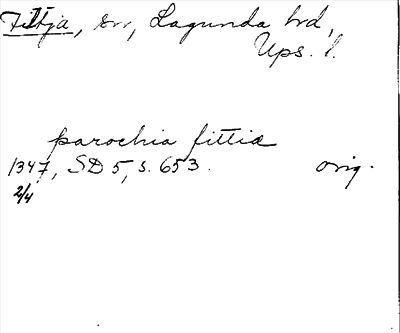 Fittja, sn, Lagunda hd,
Ups. l.
parochia fittia
1347, SD 5, s. 653. orig.
2/4